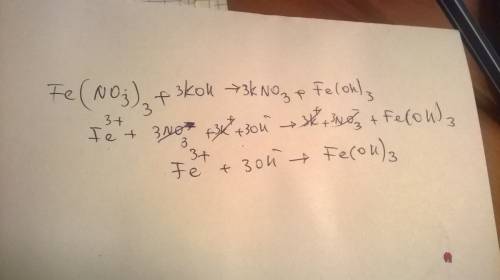 Fe(NO3)3 + 3KOH → 3KNO3 + Fe(OH)3
Fe³⁺ + 3NO3⁻ + 3K⁺ + 3OH⁻ → 3K⁺ + 3NO3⁻ + Fe(OH)3
Fe³⁺ + 3OH⁻ → Fe(OH)3